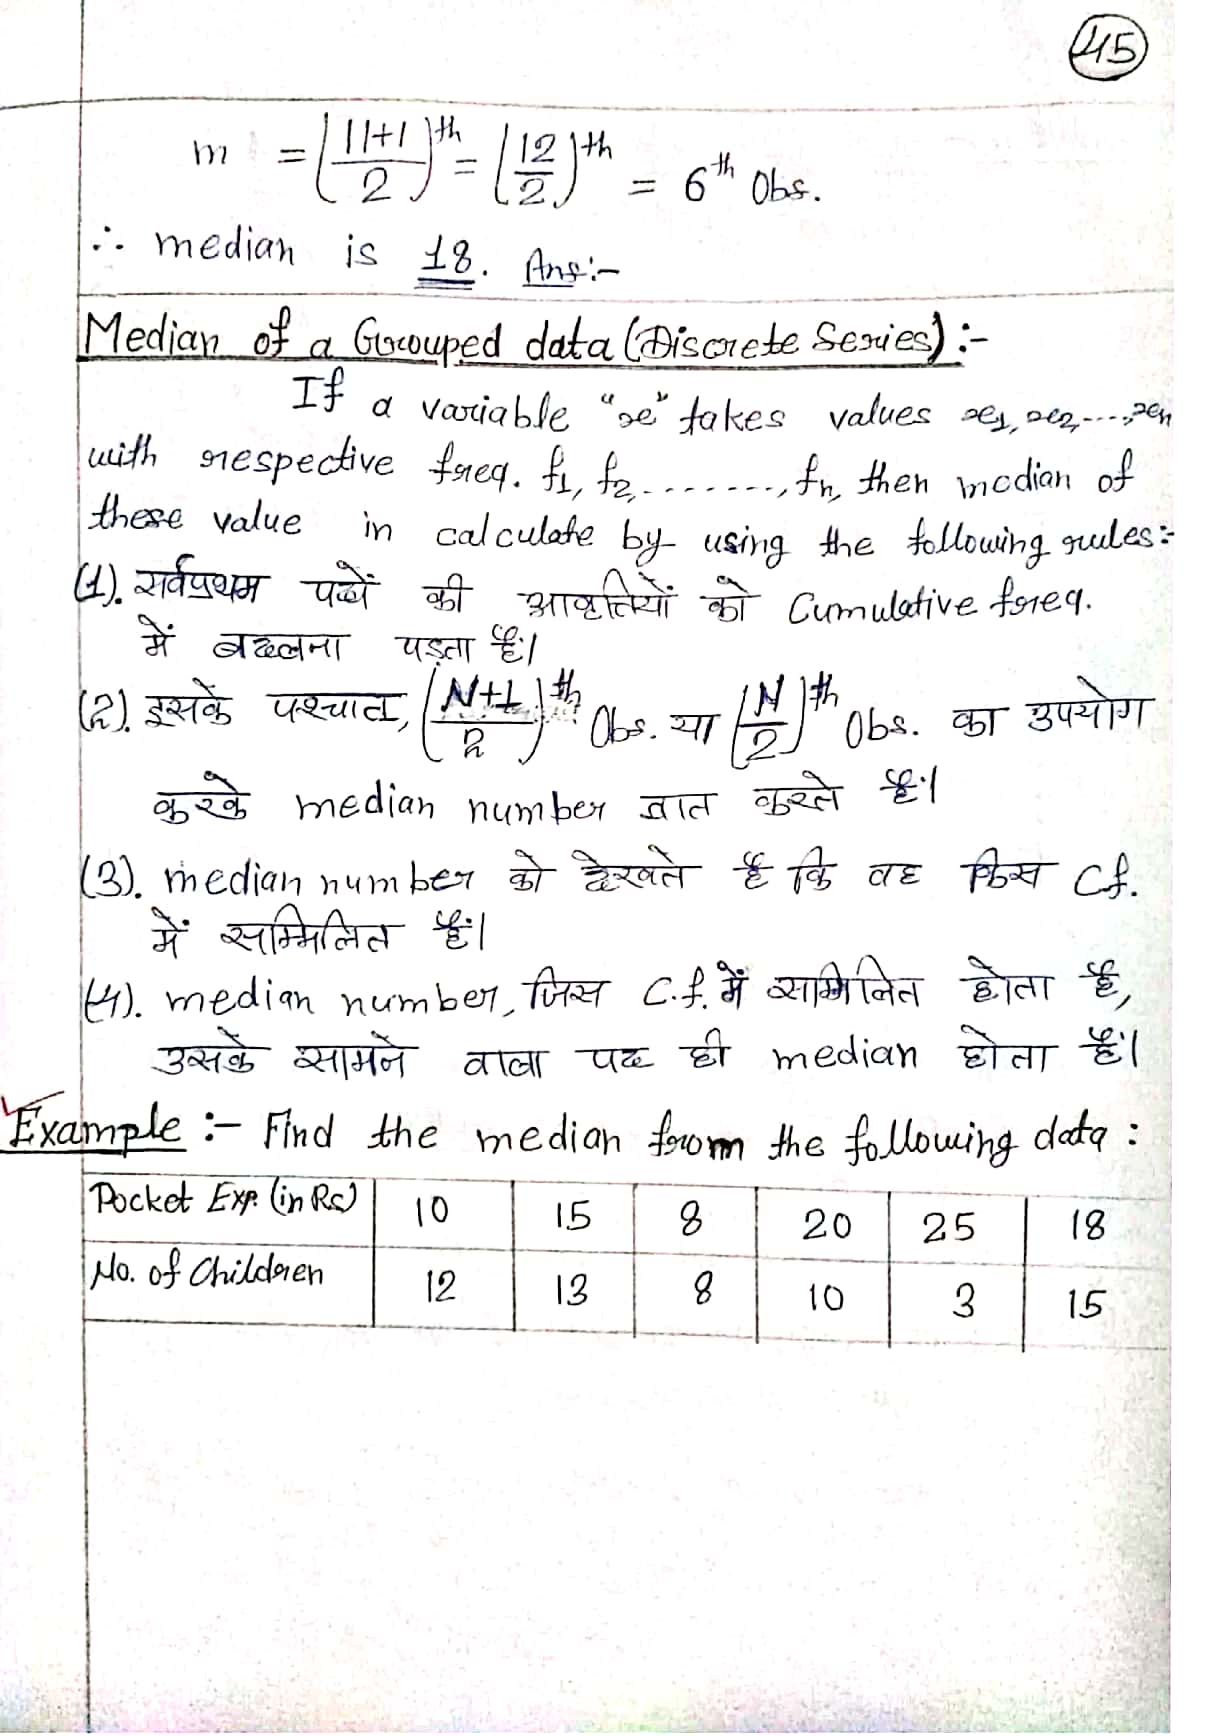 45
m = (11+1/2)th = (12/2)th = 6th Obs.
∴ median is 18. Ans:-
Median of a Grouped data (Discrete Series) :-
If a variable "x" takes values x1, x2, ----, xn
with respective freq. f1, f2, --------, fn, then median of
these value in calculate by using the following rules:-
(1). सर्वप्रथम पदों की आवृत्तियों को Cumulative freq.
में बदलना पड़ता है।
(2). इसके पश्चात, (N+1/2)th Obs. या (N/2)th Obs. का उपयोग
करके median number ज्ञात करते हैं।
(3). median number को देखते हैं कि वह किस Cf.
में सम्मिलित हैं।
(4). median number, जिस C.f. में सम्मिलित होता है,
उसके सामने वाला पद ही median होता हैं।
Example :- Find the median from the following data :
Pocket Exp. (in Rs) 10 15 8 20 25 18
No. of Children 12 13 8 10 3 15